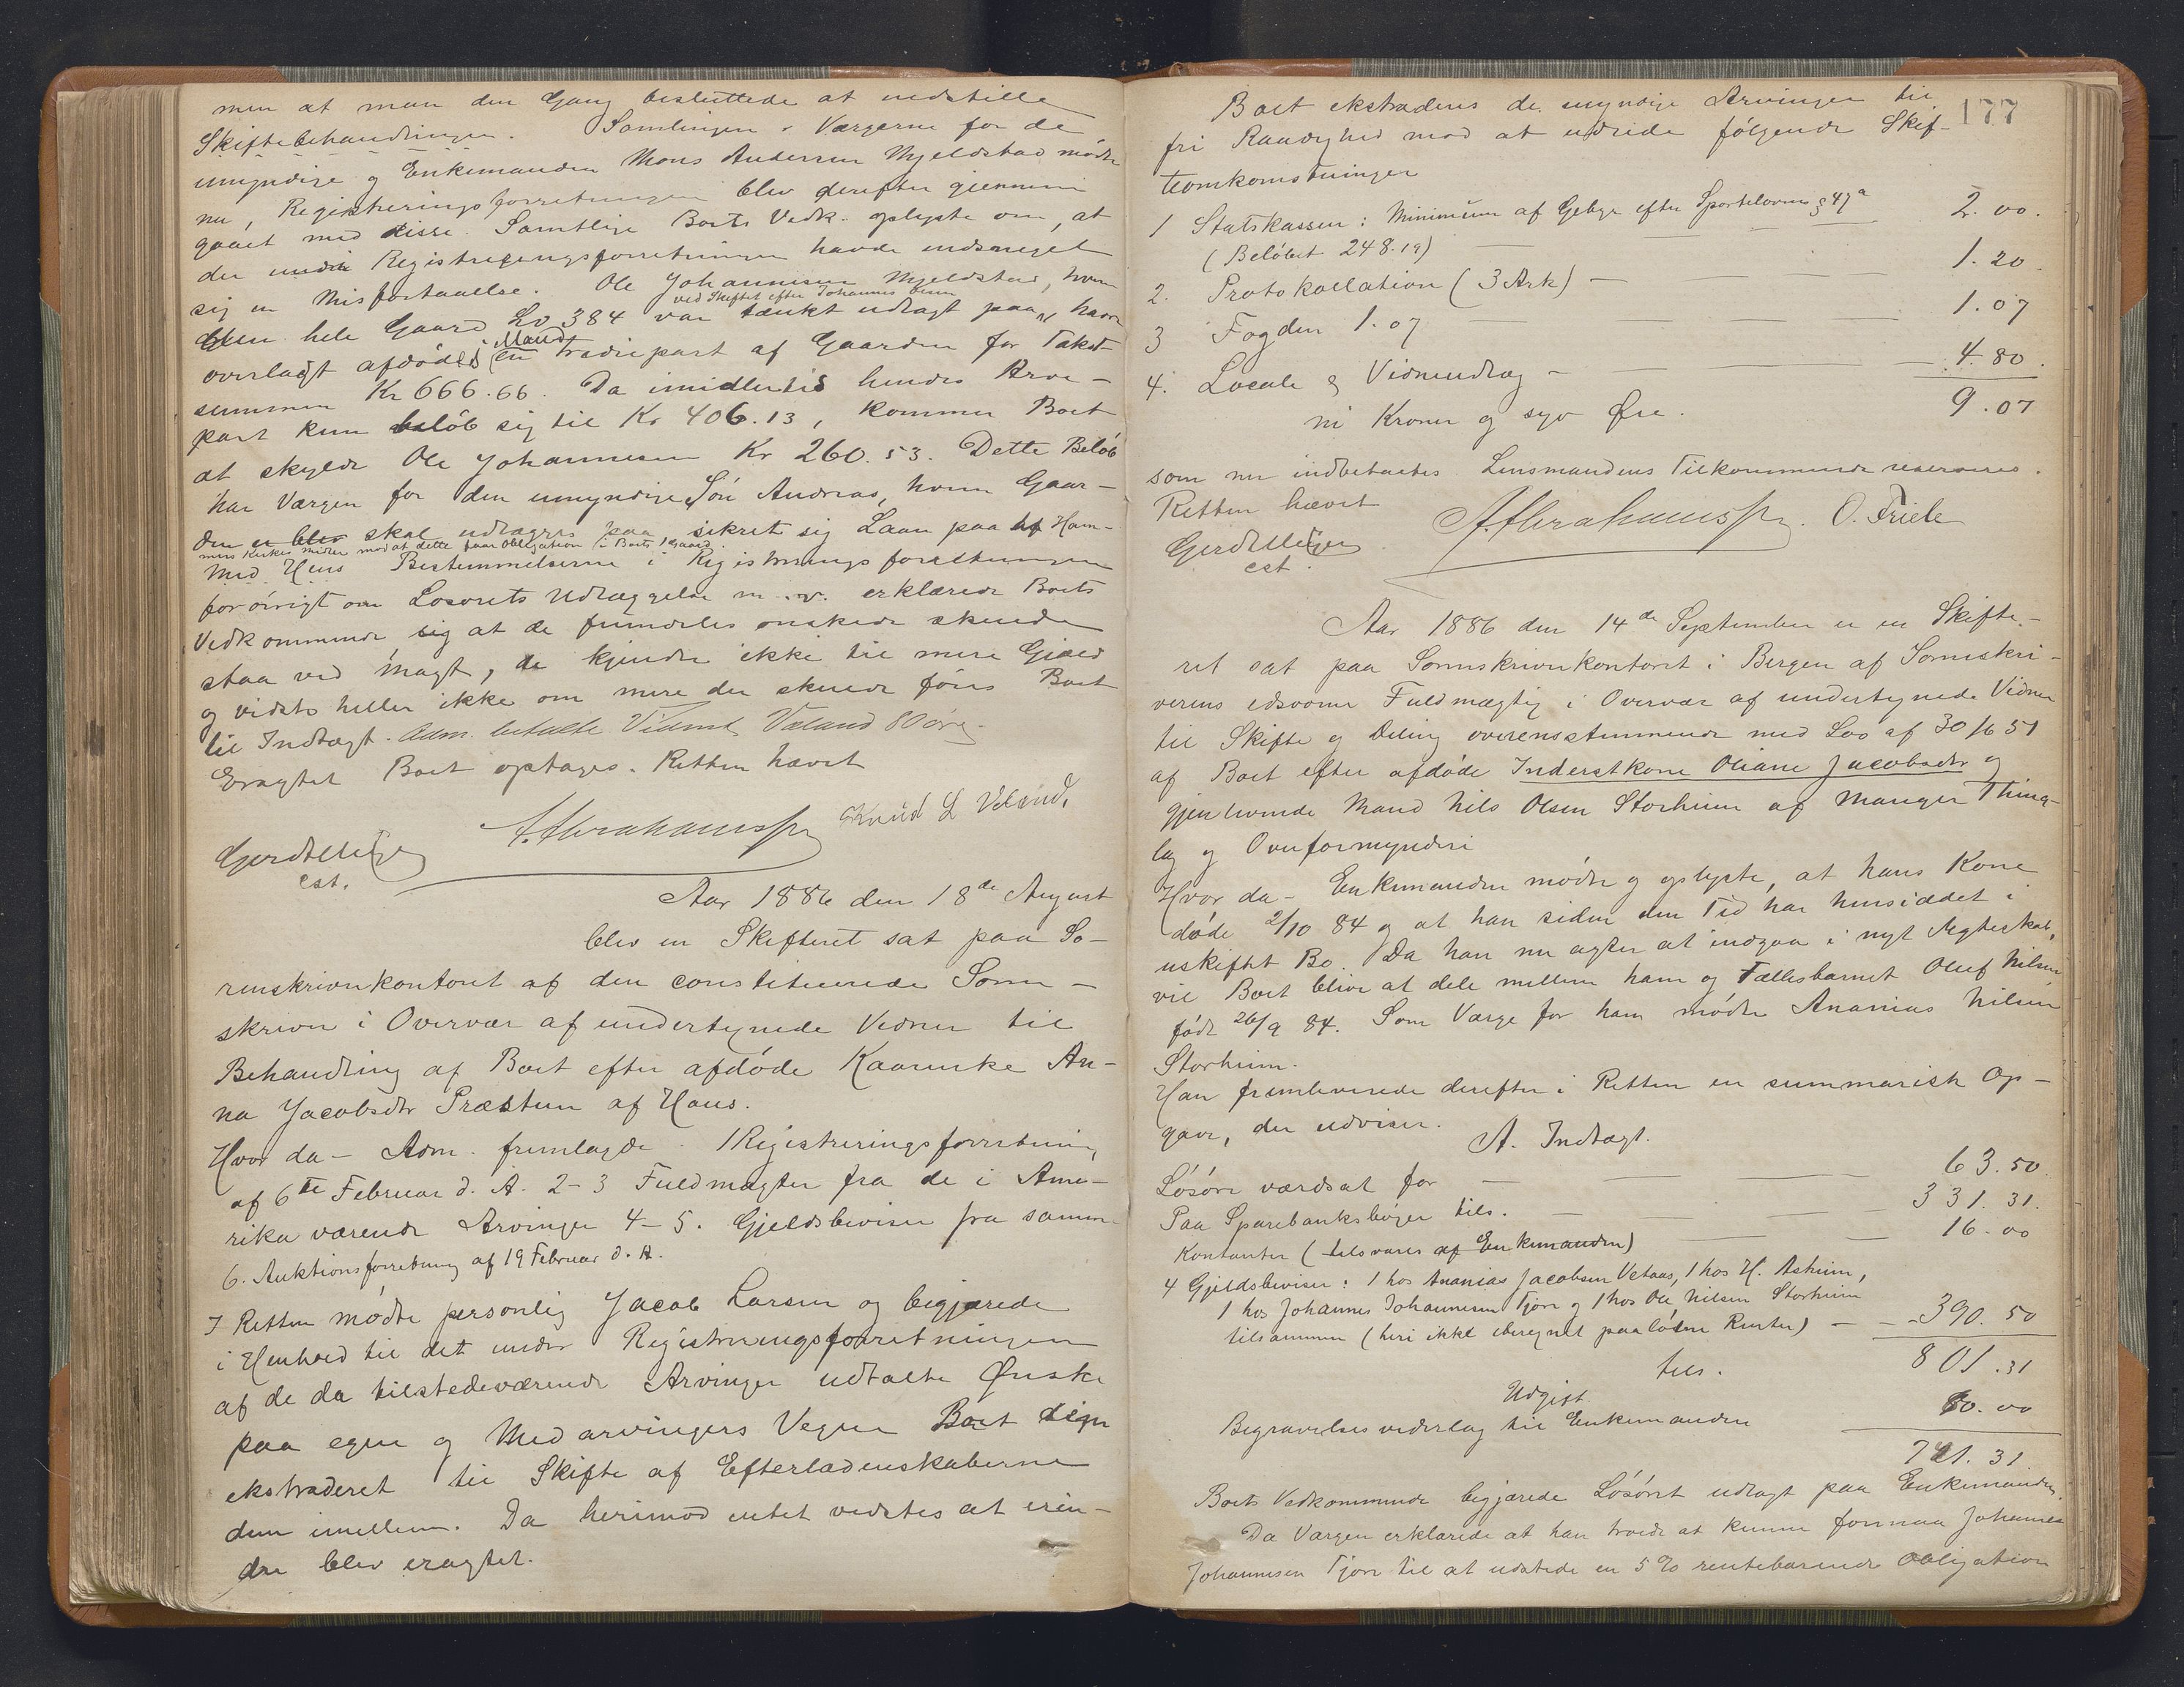 men at man den Gang besluttede at nedstille
Skiftebehandlingen. Samtlige Værgerne for de
umyndige og Enkemanden Mons Andersen Mjeldstad mødte
nu, Registreringsforretningen blev derefter gjennem
gaaet med disse. Samtlige Boets Vedk. oplyste om, at
der under Registreringsforretningen havde indsneget
sig en Misforstaaelse. Ole Johannesen Mjeldstad, hvem
ved Skiftet efter Johannes
den hele Gaard Lv 384 var tænkt udlagt paa, havde
overladt afdødes Mand en Trediepart af Gaarden for Takst-
summen Kr 666.66. Da imidlertid hendes Arve-
part kun beløb sig til Kr 406.13, kommer Boet
at skylde Ole Johannesen Kr 260.53. Dette Beløb
har Værgen for den umyndige Søn Andreas, hvem Gaar-
den er blev skal udlægges paa sikret sig Laan paa af Ham-
mers Kirkes Midler mod at dette faar Obligation i Boets Gaard.
Med Hens Bestemmelserne i Registreringsforretningen
forøvrigt om Løsørets Udlæggelse m.v. erklærede Boets
Vedkommende sig at de fremdeles ønskede skulde
staa ved Magt, de kjendte ikke til mere Gjæld
og vidste heller ikke om mere der skulde føres Boet
til Indtægt. Adm. betalte Vidnet Veland 80 øre.
Eragtet Boet optages. Retten hævet
A. Abrahamssen Knud L Veland.
Gerdt Meyer
cst.
Aar 1886 den 18de August
blev en Skifteret sat paa So-
renskriverkontoret af den constituerede Soren-
skriver i Overvær af undertegnede Vidner til
Behandling af Boet efter afdøde Kaarenke An-
na Jacobsdtr Præstun af Haus.
Hvor da - Adm. fremlagde 1 Registreringsforretning
af 6te Februar d. A. 2-3 Fuldmagter fra de i Ame-
rika værende Arvinger 4-5. Gjeldsbeviser fra samme
6. Auktionsforretning af 19 Februar d. A.
I Retten mødte personlig Jacob Larsen og begjærede
i Henhold til det under Registreringsforretningen
af de da tilstedeværende Arvinger udtalte Ønske
paa egne og Medarvingers Vegne Boet
ekstraderet til Skifte af Efterladenskaberne
dem imellem. Da herimod intet vidstes at erin-
dre blev eragtet.
177
Boet ekstraderes de myndige Arvinger til
fri Raadighed mod at udrede følgende Skif-
teomkomstninger
1 Statskassen: Minimum af Gebyr efter Sportelloven § 47a 2.00.
(Beløbet 248.19)
2. Protokollation (3 Ark) — 1.20.
3 Fogden 1.07 1.07
4. Locale og Vidneudlæg — 4.80.
ni Kroner og syv Øre. 9.07
som nu indbetaltes. Lensmandens Tilkommende reserveres.
Retten hævet
Gerdt Meyer A. Abrahamssen. O. Friele
cst.
Aar 1886 den 14de September er en Skifte-
ret sat paa Sorenskriverkontoret i Bergen af Sorenskri-
verens edsvorne Fuldmægtig i Overvær af undertegnede Vidner
til Skifte og Deling overensstemmende med Lov af 30/6 51
af Boet efter afdøde Inderstkone Oliane Jacobsdtr og
gjenlevende Mand Nils Olsen Storheim af Manger Thing-
lag og Overformynderi
Hvor da - Enkemanden mødte og oplyste, at hans Kone
døde 2/10 84 og at han siden den Tid har hensiddet i
uskiftet Bo. Da han nu agter at indgaa i nyt Ægteskab,
vil Boet blive at dele mellem ham og Fællesbarnet Oluf Nilsen
født 26/9 84. Som Værge for ham mødte Ananias Nilsen
Storheim.
Han fremleverede derefter i Retten en summarisk Op-
gave, der udviser.
A. Indtægt.
Løsøre værdsat for — 63.50
Paa Sparebanksbøger tils. — 331.31.
Kontanter (tilsvares af Enkemanden) — 16.00
4 Gjeldsbeviser: 1 hos Ananias Jacobsen Vetaas, 1 hos H. Askeim,
1 hos Johannes Johannesen Tjore og 1 hos Ole Nilsen Storheim
tilsammen (heri ikke iberegnet paaløbne Renter) — 390.50
tils. 801.31
Udgift.
Begravelsesvederlag til Enkemanden 60.00
741.31
Boets Vedkommende begjærede Løsøret udlagt paa Enkemanden.
Da Værgen erklærede at han troede at kunne formaa Johannes
Johannesen Tjore til at udstede en 5% rentebærende Obligation